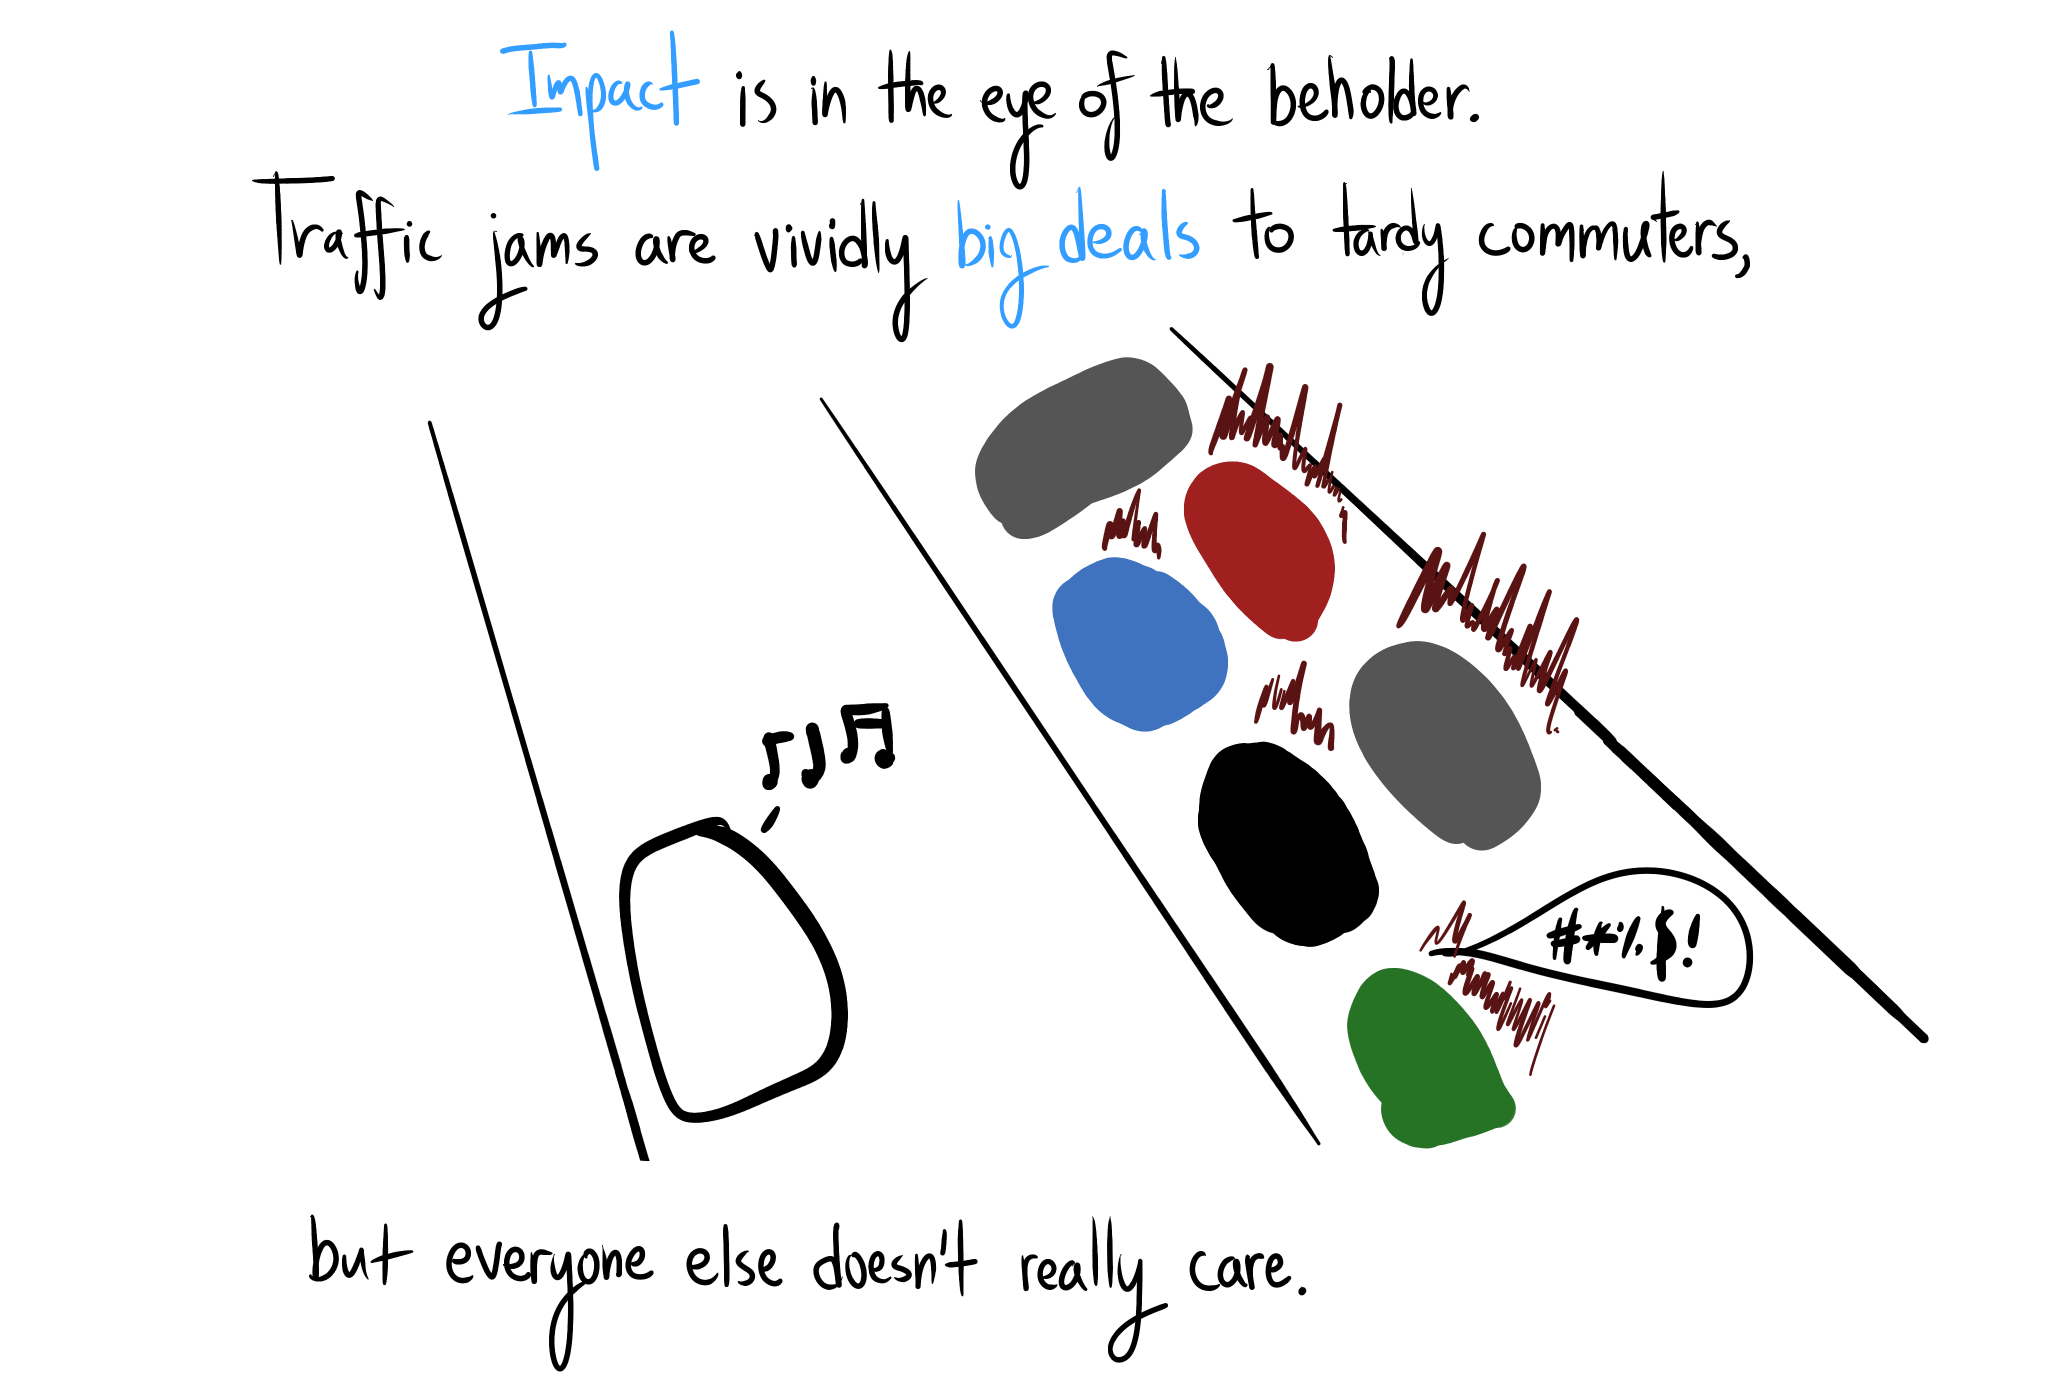 Impact is in the eye of the beholder.
Traffic jams are vividly big deals to tardy commuters,
#*%$!
but everyone else doesn't really care.